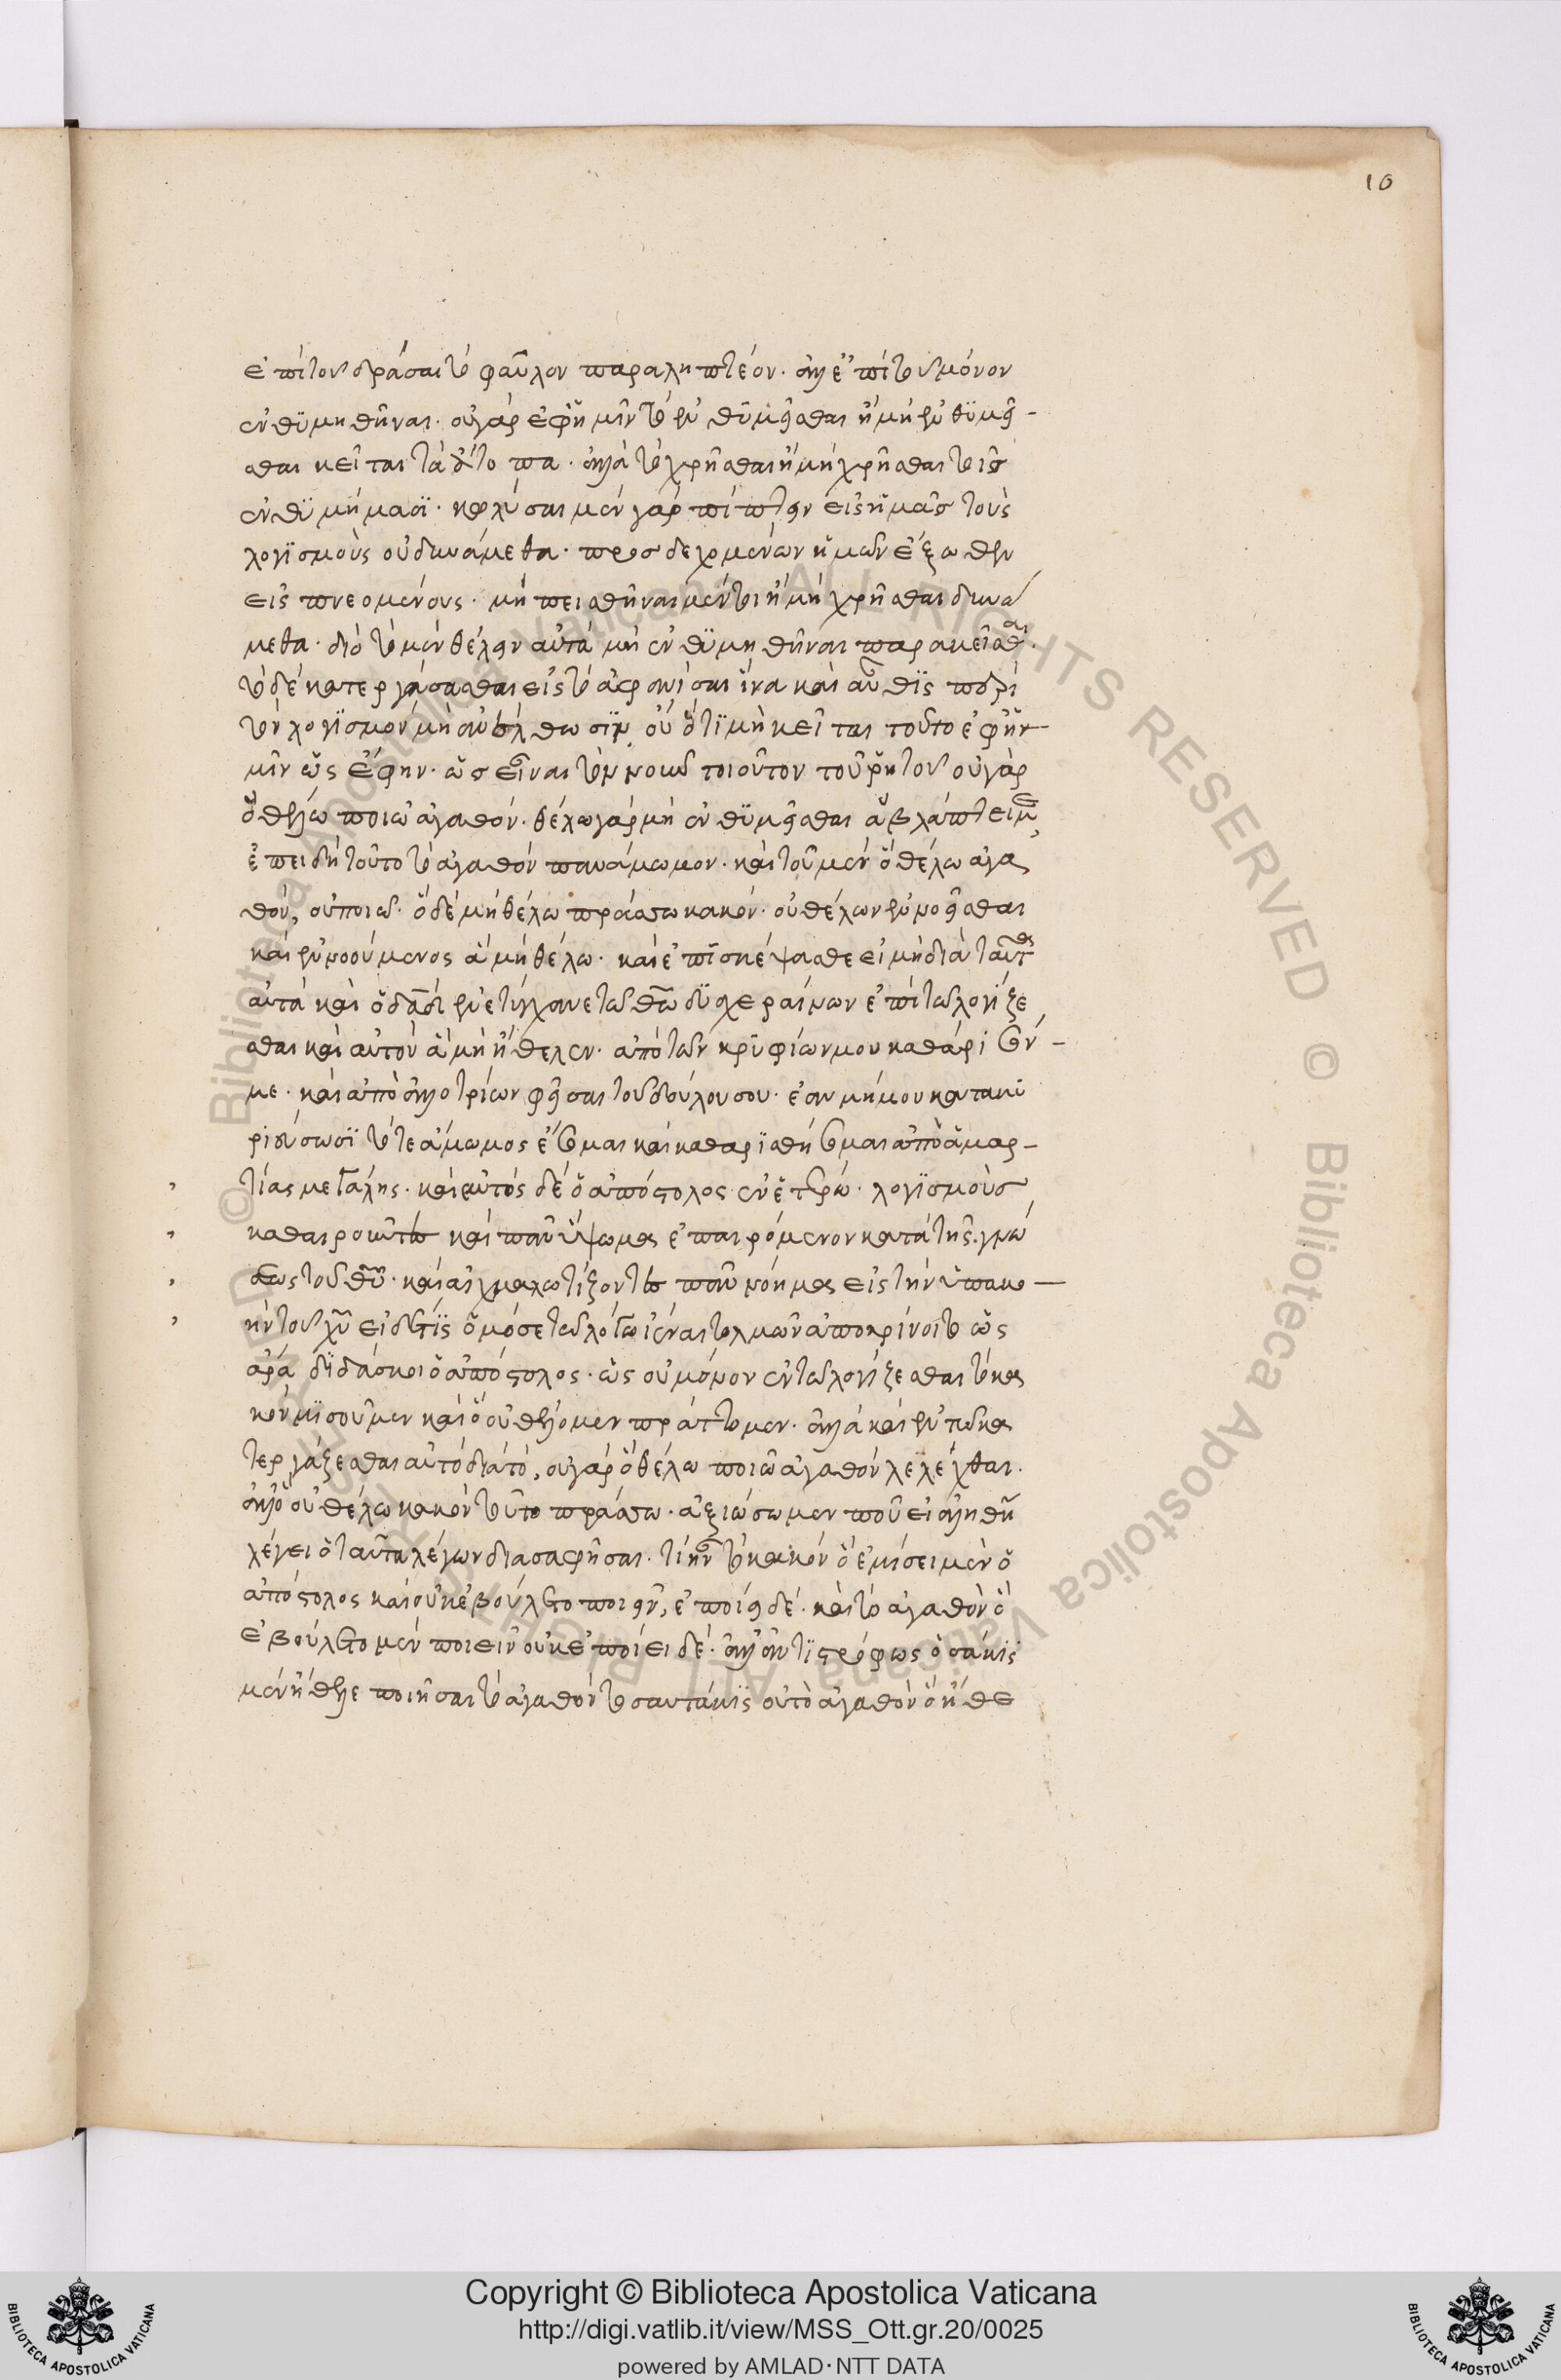 10
ἐπὶ τοῦ δρᾶσαι τὸ φαῦλον παραληπτέον. ἀλλ' ἐπὶ τοῦ μόνον
ἐνθϋμηθῆναι. οὐ γὰρ ἐφ' ἡμῖν τὸ ἐνθϋμεῖσθαι ἢ μὴ ἐνθϋμεῖ-
σθαι κεῖται τὰ ἄτοπα. ἀλλὰ τὸ χρῆσθαι ἢ μὴ χρῆσθαι τοῖς
ἐνθϋμήμασϊ. κωλύσαι μὲν γὰρ πίπτειν εἰς ἡμᾶς τοὺς
λογϊσμοὺς οὐ δυνάμεθα. προσδεχομένων ἡμῶν ἔξωθεν
εἰσπνεομένους. μὴ πεισθῆναι μέντοι ἢ μὴ χρῆσθαι δυνά
μεθα. διὸ τὸ μὲν θέλειν αὐτὰ μὴ ἐνθϋμηθῆναι παρακεῖσθαι.
τὸ δὲ κατεργάσασθαι εἰς τὸ ἀφανίσαι ἵνα καὶ αὖθϊς περὶ
τὸν λογϊσμὸν μὴ ἀνέλθωσϊν, οὐ ὅτϊ μὴ κεῖται τοῦτο ἐφ' ἡ-
μῖν ὡς ἔφην. ὡς εἶναι τὸν νοῦν τοιοῦτον τοῦ ῥητοῦ οὐ γὰρ
ὃ θέλω ποιῶ ἀγαθόν. θέλω γὰρ μὴ ἐνθϋμεῖσθαι ἃ βλάπτει με,
ἐπειδὴ τοῦτο τὸ ἀγαθὸν πανάμωμον. καὶ τοῦ μὲν ὃ θέλω ἀγα
θὸν, οὐ ποιῶ. ὃ δὲ μὴ θέλω πράσσω κακόν. οὐ θέλων ἐννοεῖσθαι
καὶ ἐννοούμενος ἃ μὴ θέλω. καὶ ἐπϊσκέψασθε εἰ μὴ διὰ ταῦτα
αὐτὰ καὶ ὁ δαδ ἐνετύγχανε τῶ θῶ δϋσχεραίνων ἐπὶ τῶ λογίζε
σθαι καὶ αὐτὸν ἃ μὴ ἤθελεν. ἀπὸ τῶν κρϋφίων μου καθάρισόν-
με. καὶ ἀπὸ ἀλλοτρίων φεῖσαι τοῦ δούλου σου. ἐὰν μή μου κατακυ
ριεύσωσϊ τότε ἄμωμος ἔσομαι καὶ καθαρϊσθήσομαι ἀπὸ ἁμαρ-
τίας μεγάλης. καὶ αὐτὸς δὲ ὁ ἀπόστολος ἐν ἑτέρω. λογϊσμοὺς
καθαιροῦντες καὶ πᾶν ὕψωμα ἐπαιρόμενον κατὰ τῆς γνώ
σεως τοῦ θῦ. καὶ αἰχμαλωτίζοντες πᾶν νόημα εἰς τὴν ὑπακο-
ὴν τοῦ χῦ εἰ δέ τϊς ὁμόσε τῶ λόγω ἰέναι τολμῶν ἀποκρίνοιτο ὡς
ἄρα δϊδάσκοι ὁ ἀπόστολος. ὡς οὐ μόνον ἐν τῶ λογίζεσθαι τὸ κα
κὸν μϊσοῦμεν καὶ ὃ οὐ θέλομεν πράττομεν. ἀλλὰ καὶ ἐν τῶ κα
τεργάζεσθαι αὐτὸ διὰ τὸ, οὐ γὰρ ὃ θέλω ποιῶ ἀγαθὸν λελέχθαι.
ἀλλ' ὃ οὐ θέλω κακὸν τοῦτο πράσσω. ἀξιώσωμεν που εἰ ἀληθῆ
λέγει ὁ ταῦτα λέγων διασαφῆσαι. τί ἦν τὸ κακὸν ὃ ἐμίσει μὲν ὁ
ἀπόστολος καὶ οὐκ ἐβούλετο ποιεῖν, ἐποίει δέ. καὶ τὸ ἀγαθὸν ὃ
ἐβούλετο μὲν ποιεῖν οὐκ ἐποίει δέ. ἀλλ' ἀντϊστρόφως ὁσάκϊς
μὲν ἤθελε ποιῆσαι τὸ ἀγαθὸν τοσαυτάκϊς οὐ τὸ ἀγαθὸν ὃ ἤθε
© Biblioteca Apostolica Vaticana ALL RIGHTS RESERVED
Copyright © Biblioteca Apostolica Vaticana
http://digi.vatlib.it/view/MSS_Ott.gr.20/0025
powered by AMLAD·NTT DATA
BIBLIOTECA APOSTOLICA VATICANA
BIBLIOTECA APOSTOLICA VATICANA